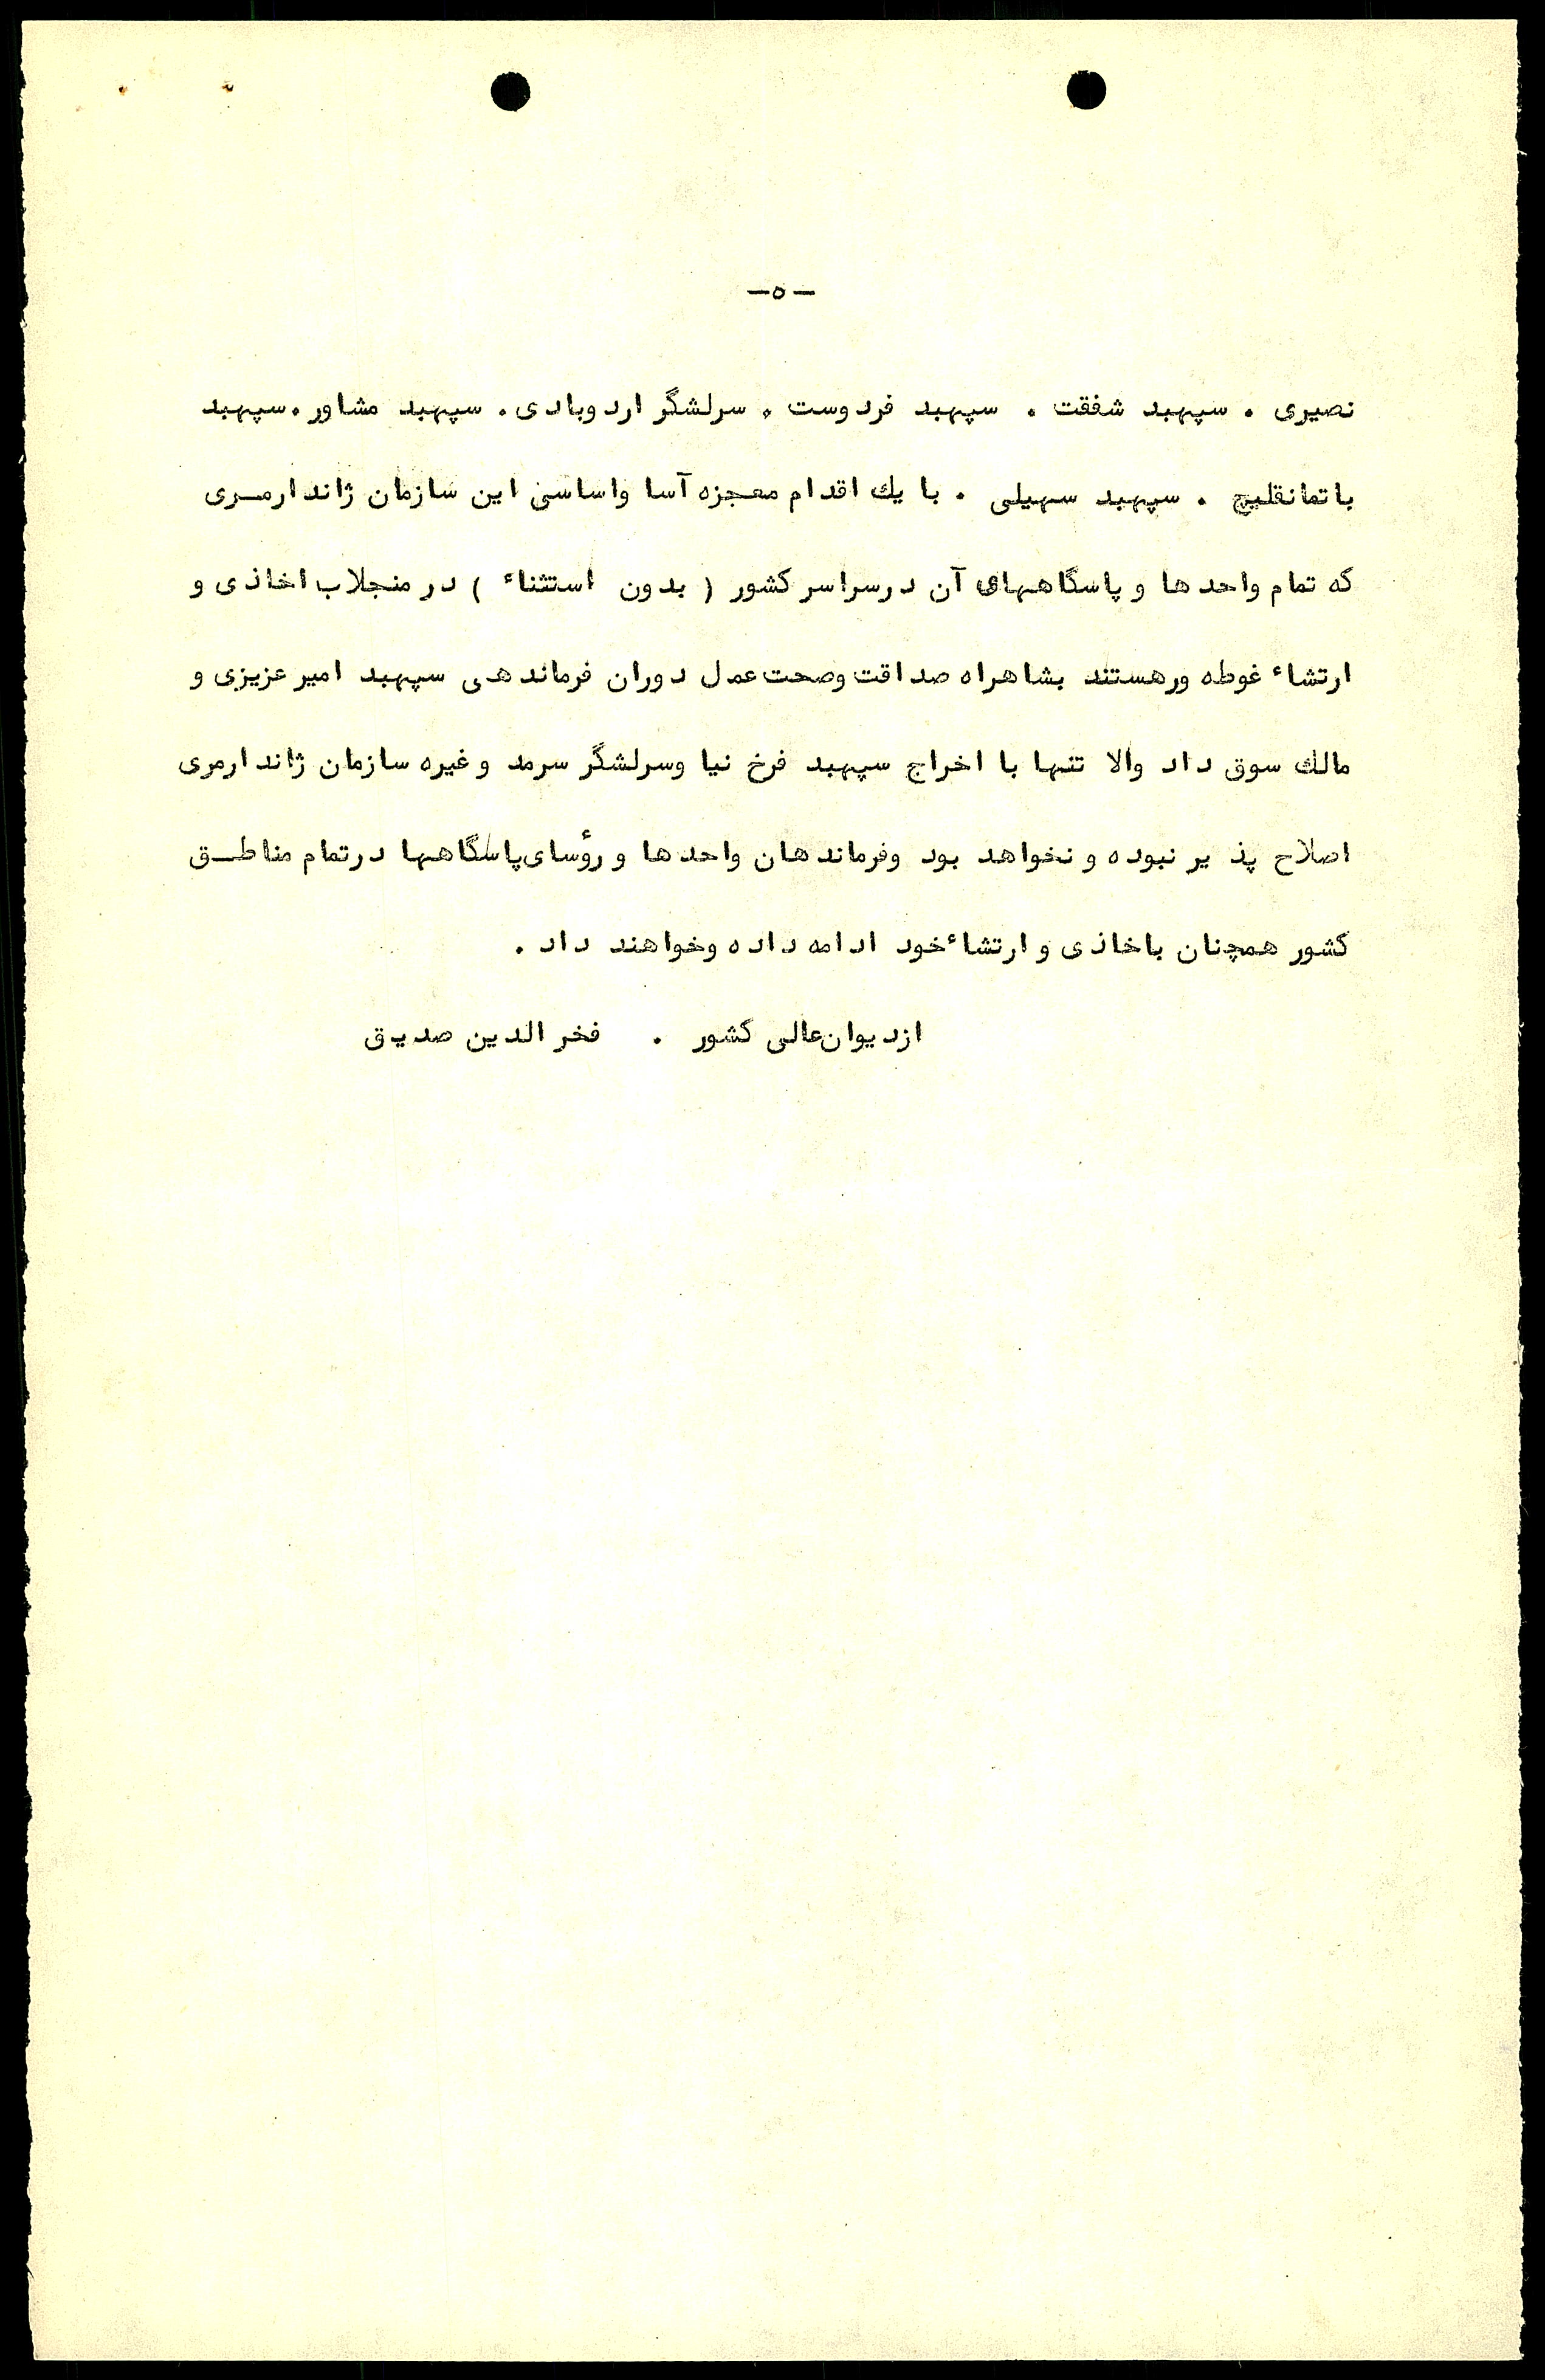 -۵-
نصیری . سپهبد شفقت . سپهبد فردوست . سرلشگر اردوبادی . سپهبد مشاور . سپهبد
باتمانقلیچ . سپهبد سهیلی . با یك اقدام معجزه آسا واساسی این سازمان ژاندارمـری
که تمام واحدها و پاسگاههای آن درسراسر کشور ( بدون استثناء ) در منجلاب اخاذی و
ارتشاء غوطه ورهستند بشاهراه صداقت وصحت عمل دوران فرماندهی سپهبد امیر عزیزی و
مالك سوق داد والا تنها با اخراج سپهبد فرخ نیا وسرلشگر سرمد وغیره سازمان ژاندارمری
اصلاح پذیر نبوده و نخواهد بود وفرماندهان واحدها و رؤسای پاسگاهها درتمام مناطـق
کشور همچنان باخاذی و ارتشاء خود ادامه داده وخواهند داد .
ازدیوان عالی کشور . فخر الدین صدیق